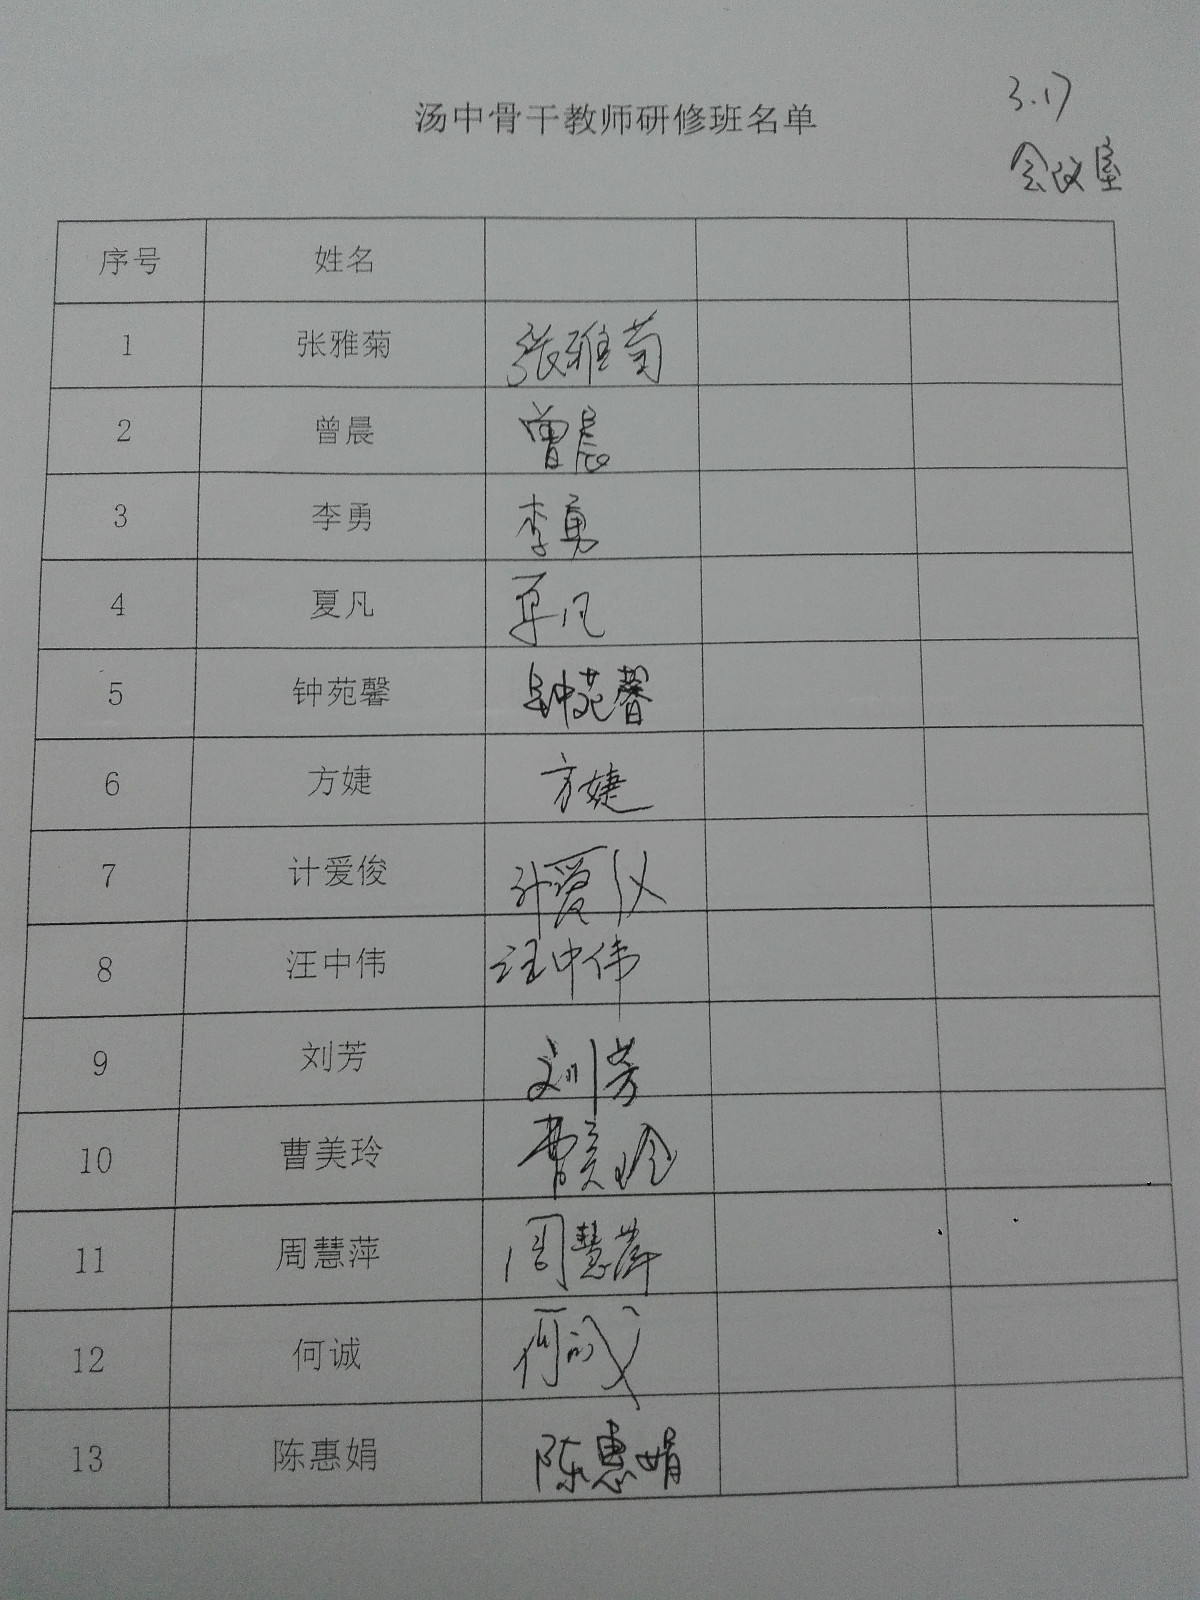 汤中骨干教师研修班名单
3.17
会议室
序号 姓名
1 张雅菊 张雅菊
2 曾晨 曾晨
3 李勇 李勇
4 夏凡 夏凡
5 钟苑馨 钟苑馨
6 方婕 方婕
7 计爱俊 计爱仪
8 汪中伟 汪中伟
9 刘芳 刘芳
10 曹美玲 曹美玲
11 周慧萍 周慧萍
12 何诚 何诚
13 陈惠娟 陈惠娟